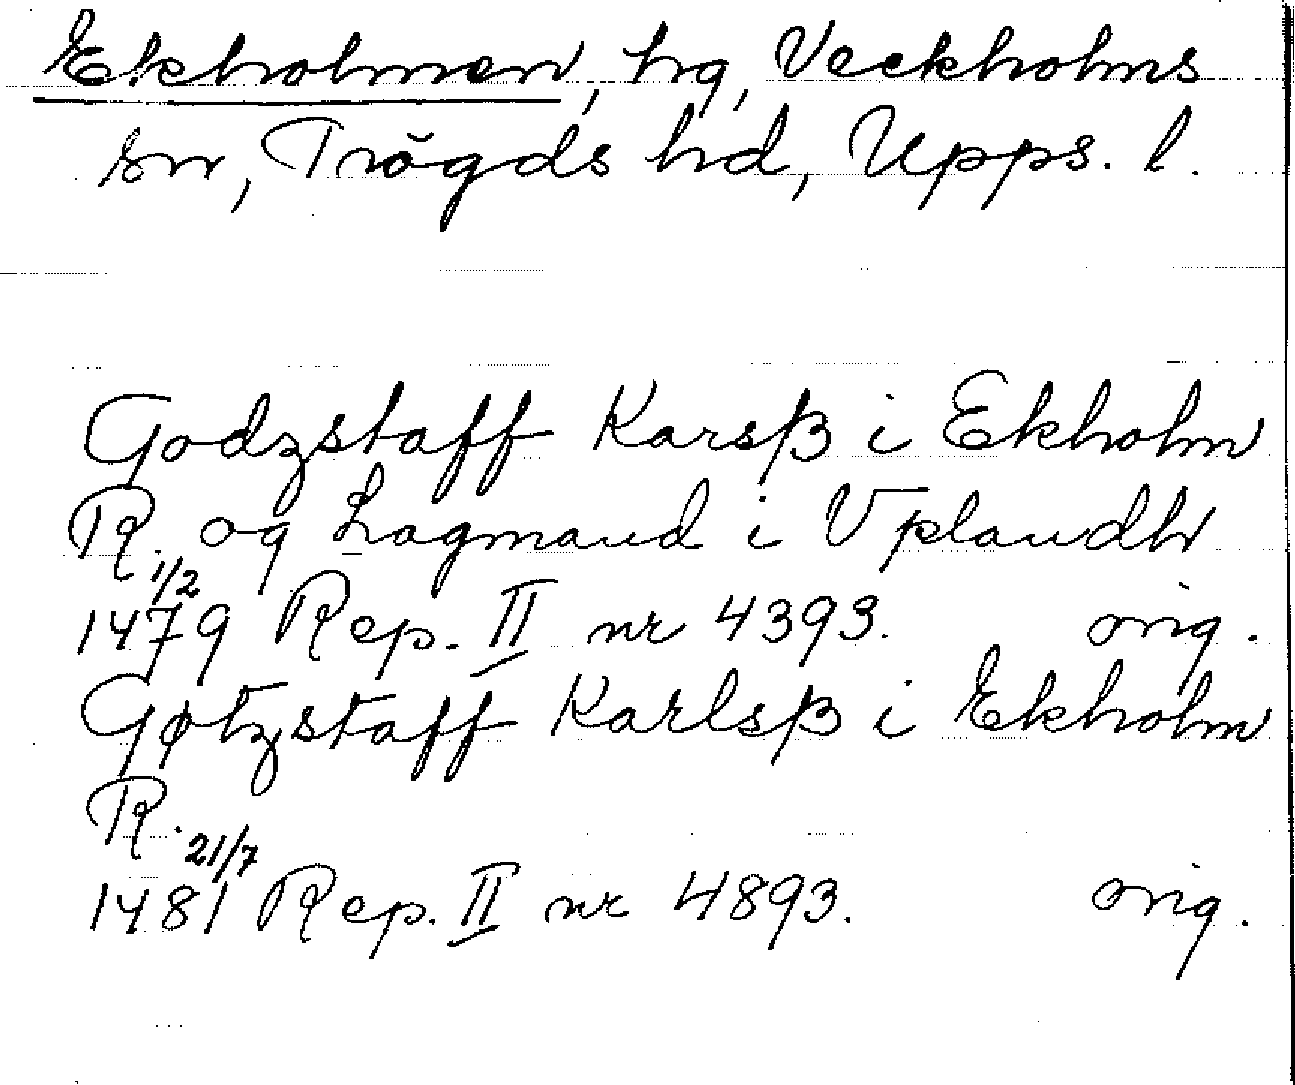 Ekholmen, hg, Veckholms
sn, Trögds hd, Upps. l.
Godzstaff Karsß i Ekholm
R. og Lagmand i Vplandh
1/2
1479 Rep. II nr 4393. orig.
Gøtzstaff Karlsß i Ekholm
R.
21/7
1481 Rep. II nr 4893. orig.